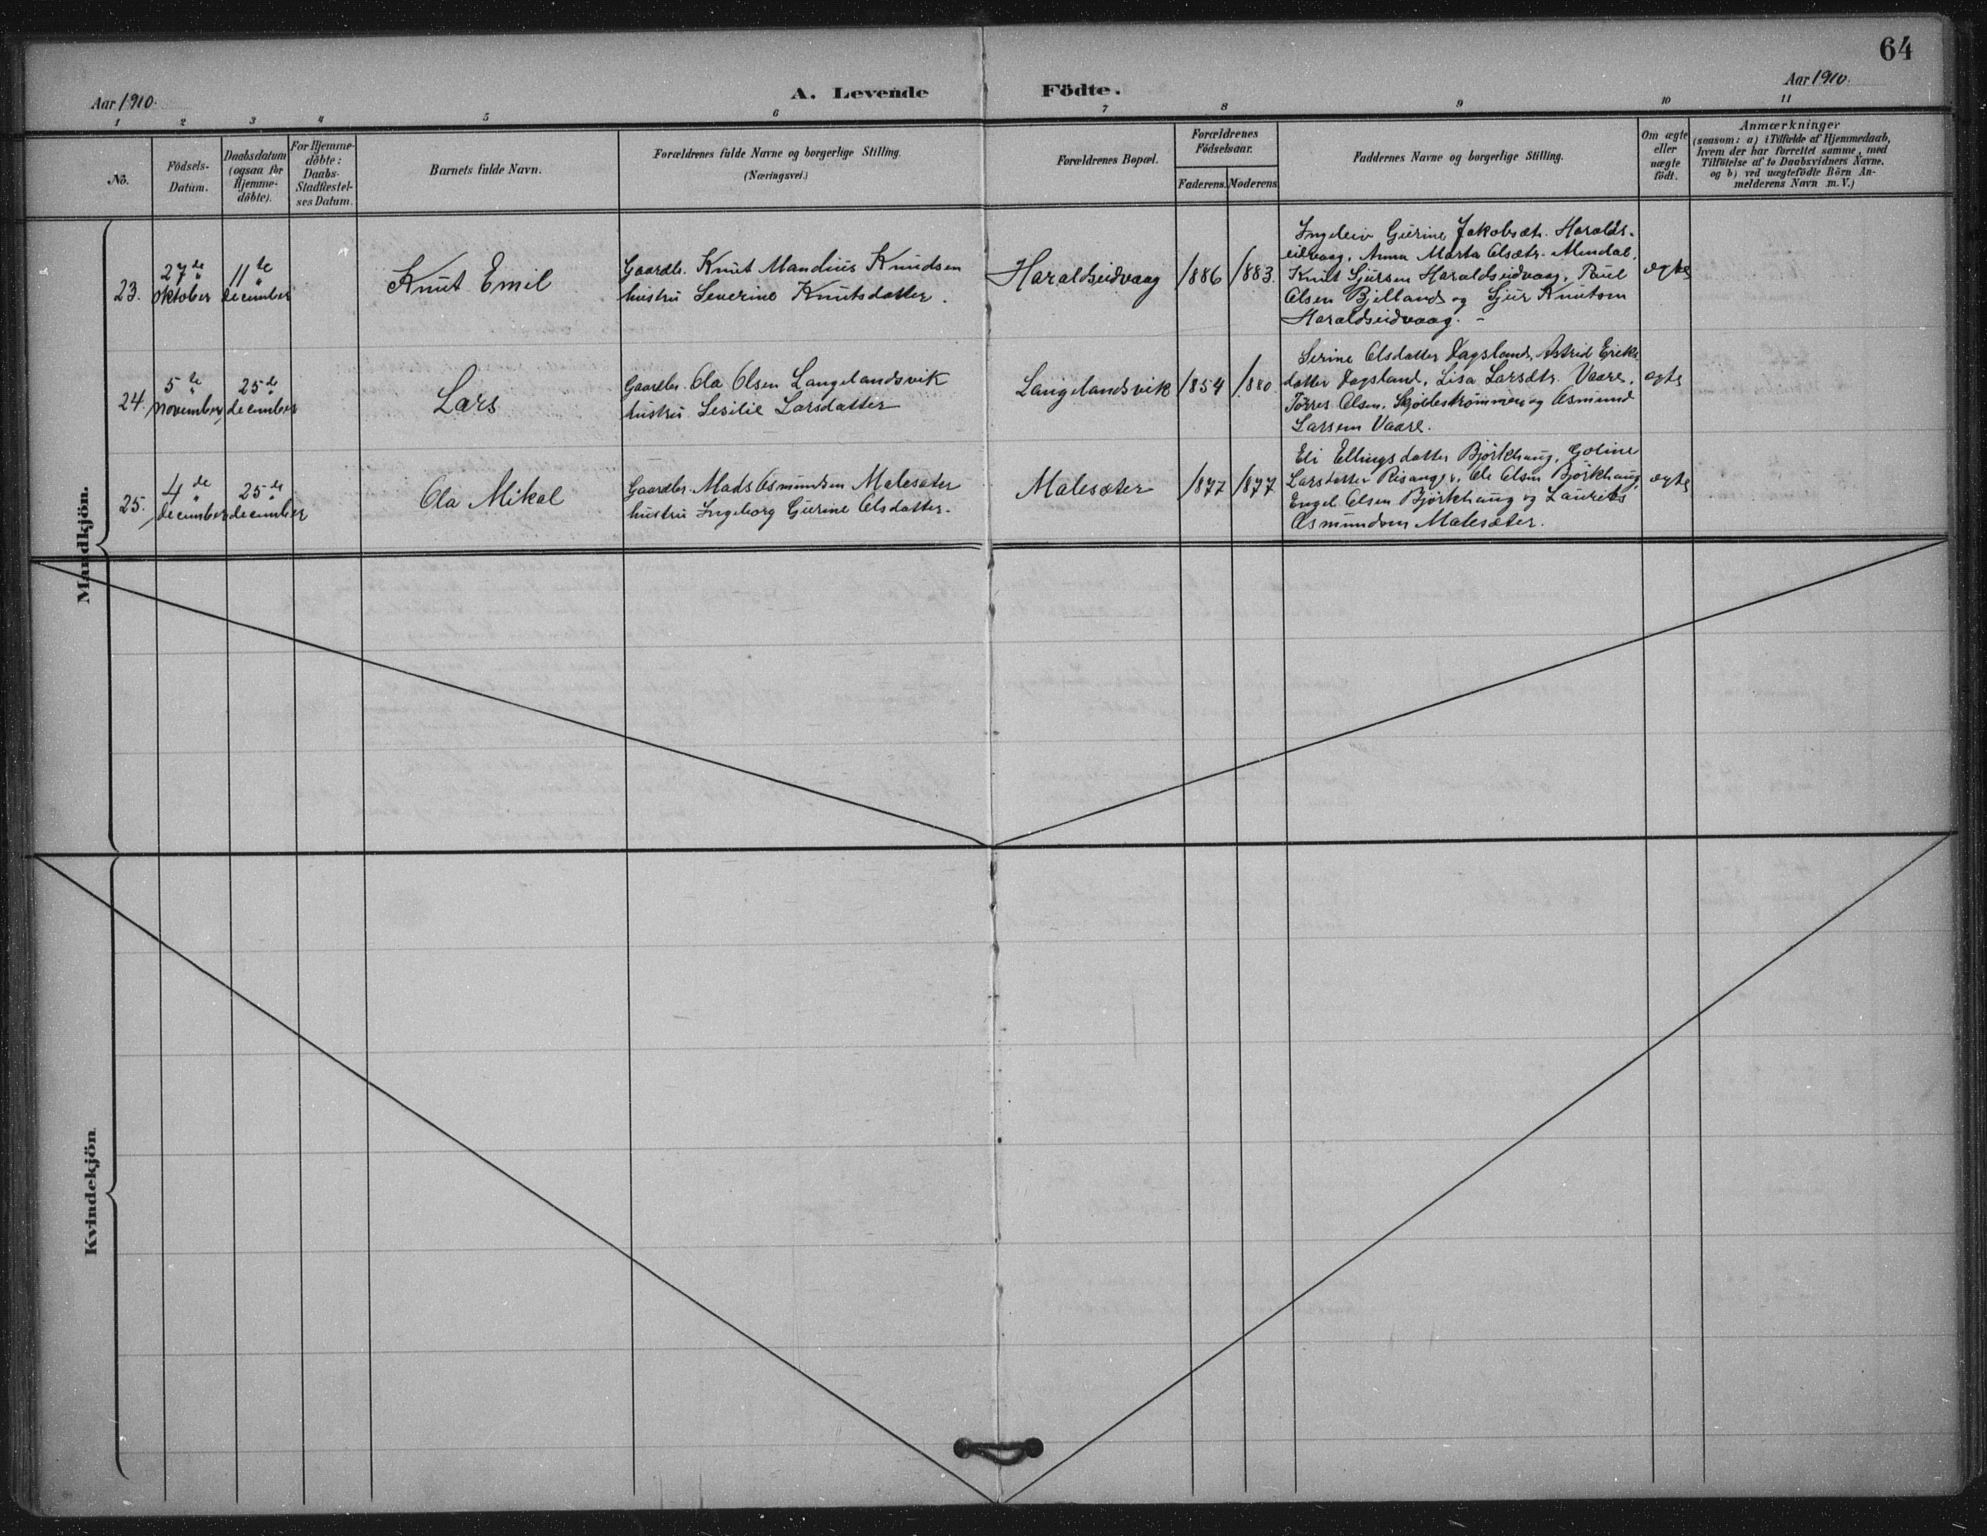 64
Aar 1910.
A. Levende Födte.
Aar 1910.
1 2 3 4 5 6 7 8 9 10 11
No.
Födsels-
Datum.
Daabsdatum
(ogsaa for
Hjemme-
döbte).
For Hjemme-
döbte:
Daabs-
Stadfæstel-
ses Datum.
Barnets fulde Navn.
Forældrenes fulde Navne og borgerlige Stilling.
(Næringsvei.)
Forældrenes Bopæl.
Forældrenes
Födselsaar.
Faderens. Moderens
Faddernes Navne og borgerlige Stilling.
Om ægte
eller
uægte
födt.
Anmærkninger
(saasom: a) i Tilfælde af Hjemmedaab,
hvem der har forrettet samme, med
Tilföielse af to Daabsvidners Navne.
og b) ved uægtefödte Börn An-
melderens Navn m.V.)
Mandkjön.
23.
27de
oktober
11te
december
Knut Emil
Gaardbr. Knut Mandius Knudsen
hustru Severine Knutsdatter.
Haraldseidvaag
1886
1883.
Ingeleiv Gurine Jakobsdtr. Haralds-
eidvaag, Anna Marta Olsdtr. Mendal,
Knut Sjursen Haraldseidvaag, Paul
Olsen Bjelland og Sjur Knutsen
Haraldseidvaag. -
ægte
24.
5te
november
25de
december
Lars
Gaardbr. Ola Olsen Langelandsvik
hustru Sesilie Larsdatter
Langelandsvik
1854
1880
Serine Olsdatter Dagsland, Astrid Eriks
datter Dagsland, Lisa Larsdtr. Vaare,
Tørres Olsen, og Asmund
Larsen Vaare.
ægte
25.
4de
december
25de
december
Ola Mikal
Gaardbr. Mads Asmundsen Malesæter
hustru Ingeborg Gurine Olsdatter.
Malesæter
1877
1877
Eli Ellingsdatter Bjørkhaug, Goline
Larsdatter Ole Olsen Bjørkhaug,
Engel Olsen Bjørkhaug og Laurits
Asmundsen Malesæter.
ægte
Kvindekjön.